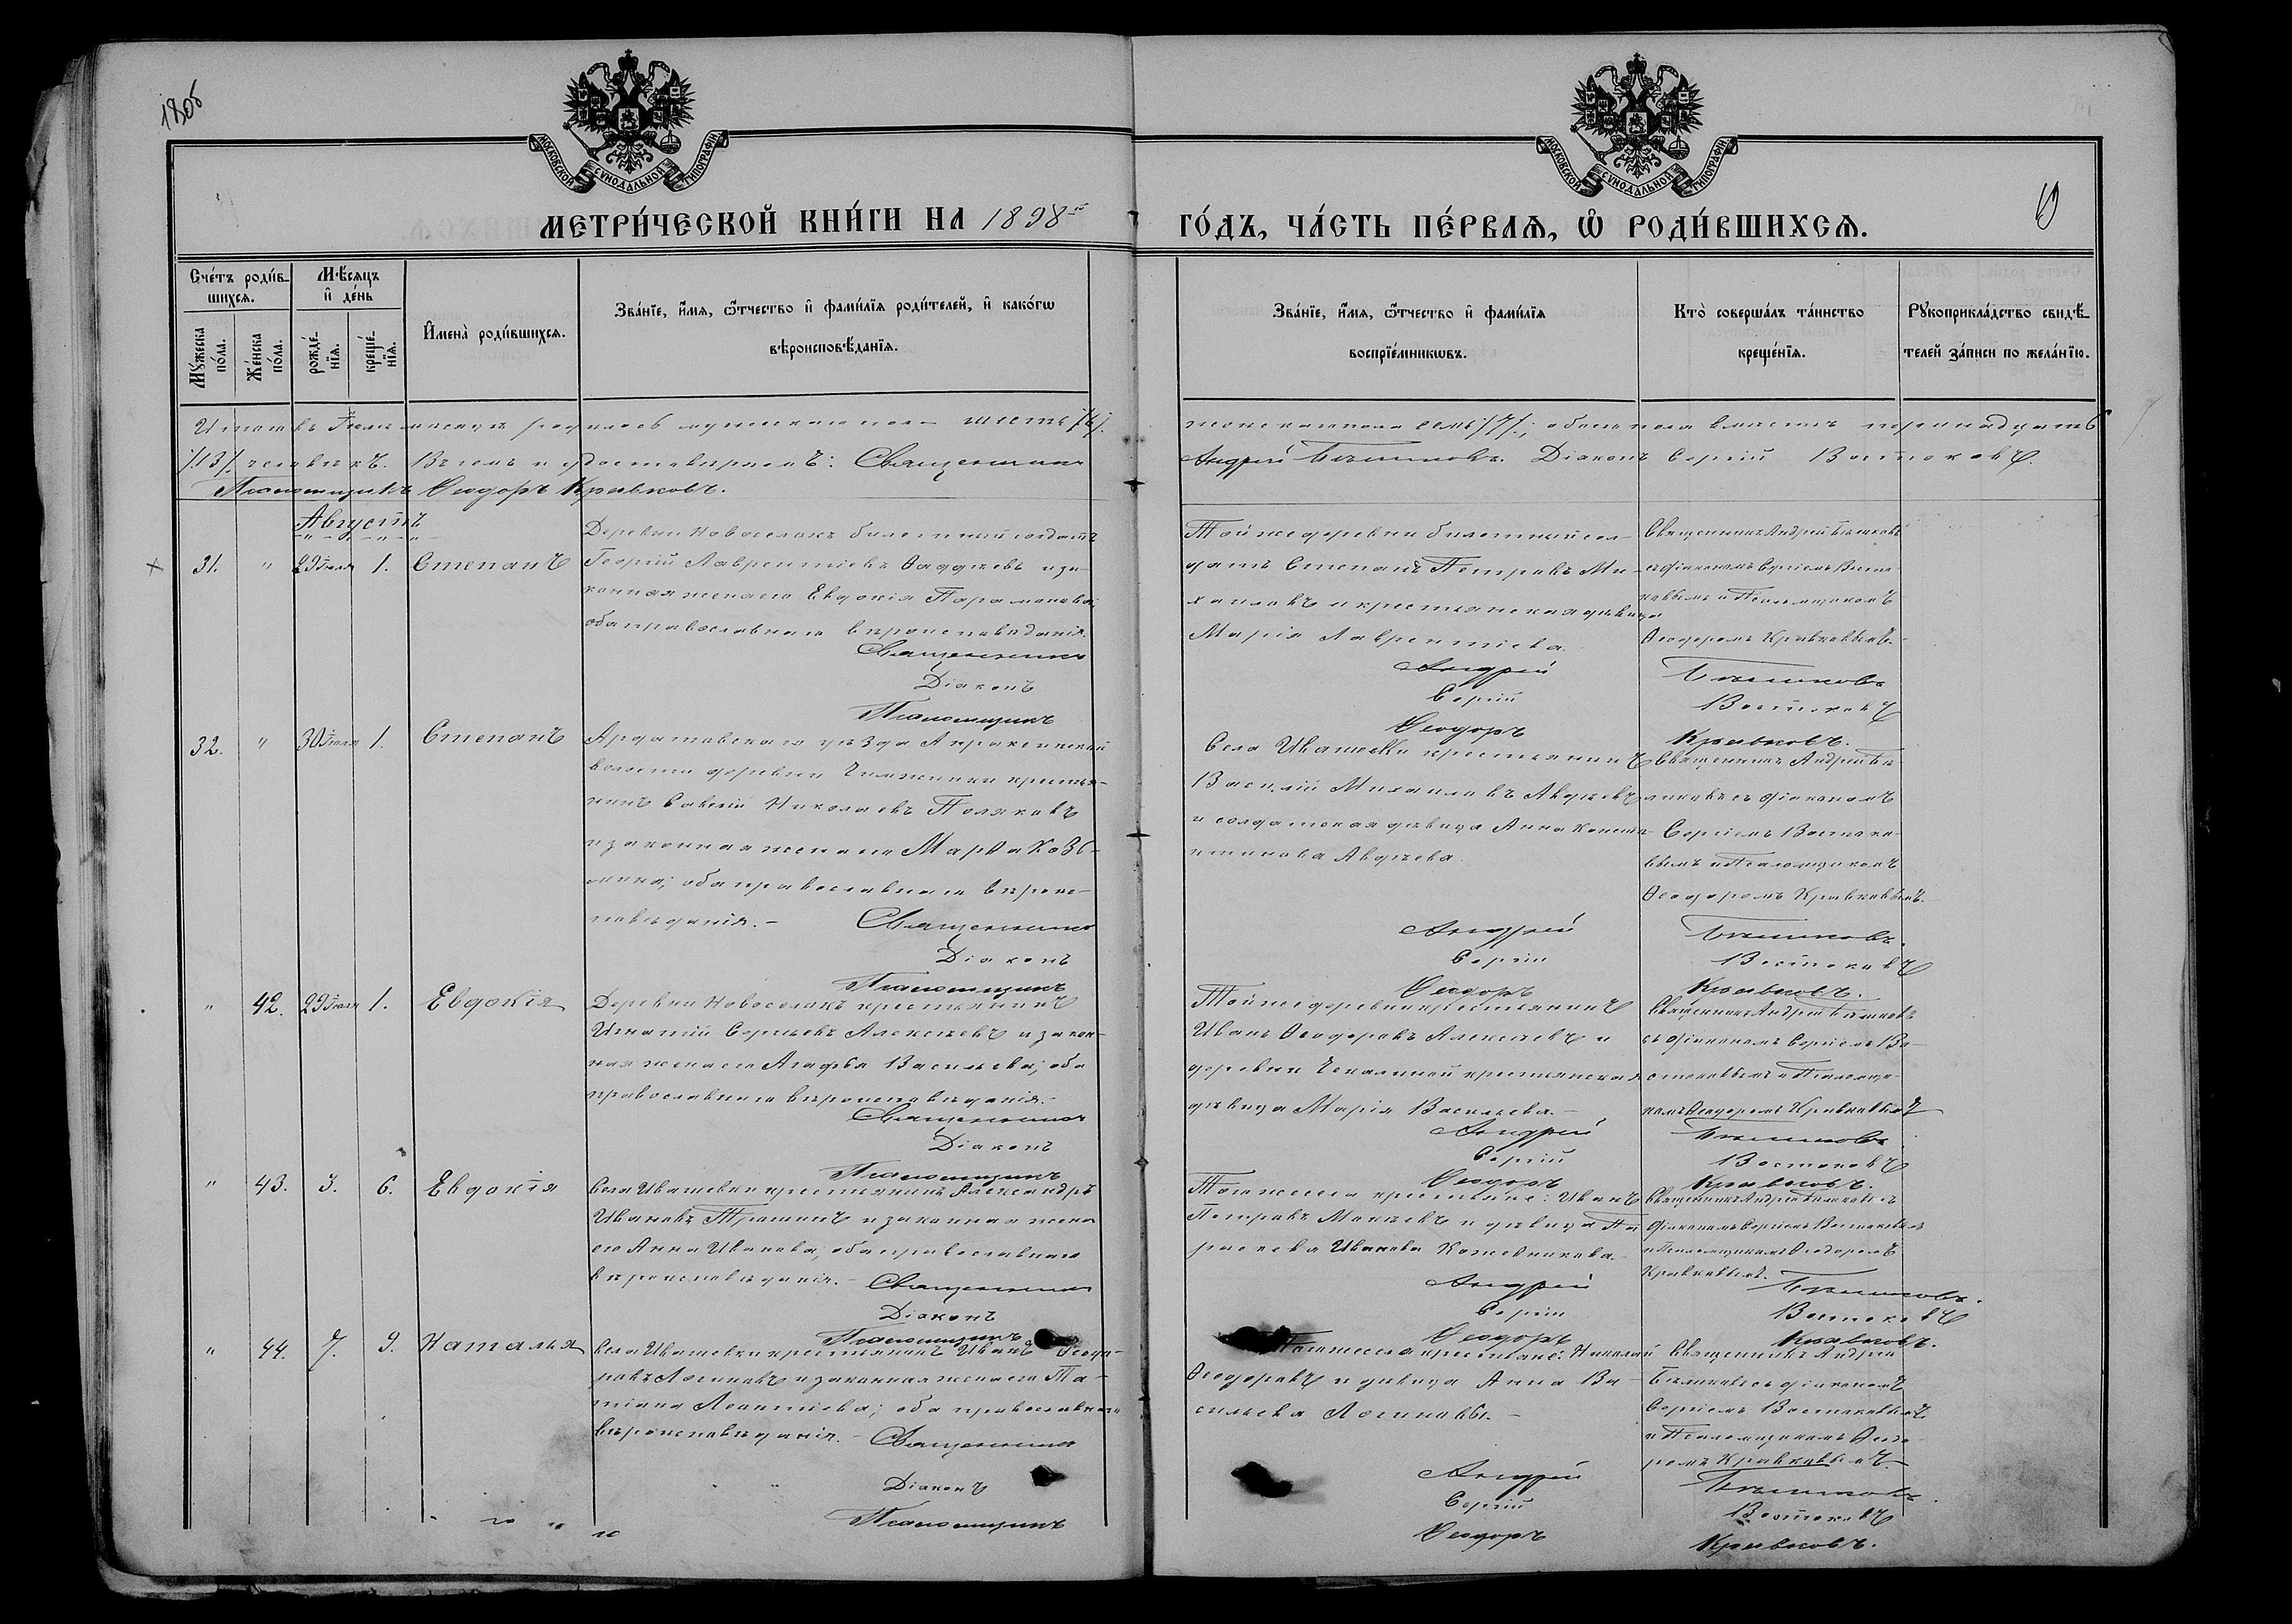 180б
МОСКОВСКОЙ СУНОДАЛЬНОЙ ТИПОГРАФІИ
МОСКОВСКОЙ СУНОДАЛЬНОЙ ТИПОГРАФІИ
МЕТРИ́ЧЕСКОЙ КНИ́ГИ НА 1898 ГО́ДЪ, ЧА́СТЬ ПЕ́РВАѦ, Ѡ҆ РОДИ́ВШИХСѦ.
Сче́тъ роди́вшихсѧ.
Мѣ́сѧцъ и҆ де́нь
Мꙋ́жеска по́ла.
Же́нска по́ла.
рожде́нїѧ.
креще́нїѧ.
И҆мена̀ роди́вшихсѧ.
Зва́нїе, и҆́мѧ, ѻ҆́тчество и҆ фами́лїѧ роди́телей, и҆ како́гѡ
вѣроисповѣ́данїѧ.
Зва́нїе, и҆́мѧ, ѻ҆́тчество и҆ фами́лїѧ
воспрїе́мникѡвъ.
Кто̀ соверша́лъ та́инство
креще́нїѧ.
Рꙋкоприкла́дство свидѣ́-
телей за́писи по жела́нїю.
Итого въ Іюлѣ мѣсяцѣ родилось мужескаго пола шесть /6/. женскаго пола семь /7/; обоего пола вмѣстѣ тринадцать
/13/ человѣкъ. Въ чемъ и удостовѣряемъ: Священникъ Андрей Бѣляковъ. Діаконъ Сергій Востоковъ.
Псаломщикъ Ѳеодоръ Кравковъ.
Августъ
31. " 29 Іюля 1. Степанъ
Деревни Новоселокъ билетный солдатъ
Георгій Лаврентіевъ Ѳаддеевъ и за-
конная жена его Евдокія Парамонова;
оба православнаго вѣроисповѣданія.
Священникъ
Діаконъ
Псаломщикъ
Той же деревни билетный сол-
датъ Степанъ Петровъ Ми-
хаиловъ и крестьянская дѣвица
Марія Лаврентіева.
Андрей
Сергій
Ѳеодоръ
Священникъ Андрей Бѣляковъ
съ діакономъ Сергіемъ Восто-
ковымъ и Псаломщикомъ
Ѳеодоромъ Кравковымъ.
Бѣляковъ
Востоковъ
Кравковъ.
32. " 30 Іюля 1. Степанъ
Ардатовскаго уѣзда Апраксинской
волости деревни крестья-
нинъ Савелій Николаевъ Поляковъ
и законная жена его Марѳа Козь-
мина; оба православнаго вѣроис-
повѣданія.
Священникъ
Діаконъ
Псаломщикъ
Села Ивашевки крестьянинъ
Василій Михаиловъ Авдѣевъ
и солдатская дѣвица Анна Конста-
нтинова Авдѣева.
Андрей
Сергій
Ѳеодоръ
Священникъ Андрей Бѣ-
ляковъ съ діакономъ
Сергіемъ Востоко-
вымъ и Псаломщикомъ
Ѳеодоромъ Кравковымъ.
Бѣляковъ.
Востоковъ
Кравковъ.
" 42. 29 Іюля 1. Евдокія
Деревни Новоселокъ крестьянинъ
Игнатій Сергѣевъ Алексѣевъ и закон-
ная жена его Агафья Васильева; оба
православнаго вѣроисповѣданія.
Священникъ
Діаконъ
Псаломщикъ
Той же деревни крестьянинъ
Иванъ Ѳеодоровъ Алексѣевъ и
деревни крестьянская
дѣвица Марія Васильева.
Андрей
Сергій
Ѳеодоръ
Священникъ Андрей Бѣляковъ
съ діакономъ Сергіемъ Во-
стоковымъ и Псаломщи-
комъ Ѳеодоромъ Кравковымъ
Бѣляковъ
Востоковъ
Кравковъ.
" 43. 3. 6. Евдокія
Села Ивашевки крестьянинъ Александръ
Ивановъ Трошинъ и законная жена
его Анна Иванова; оба православнаго
вѣроисповѣданія.
Священникъ
Діаконъ
Псаломщикъ
Того же села крестьяне: Иванъ
Петровъ Мокѣевъ и дѣвица Па-
раскева Иванова Кожевникова.
Андрей
Сергій
Ѳеодоръ
Священникъ Андрей Бѣляковъ съ
діакономъ Сергіемъ Востоковымъ
и Псаломщикомъ Ѳеодоромъ
Кравковымъ.
Бѣляковъ.
Востоковъ
Кравковъ.
" 44. 7. 9. Наталья
Села Ивашевки крестьянинъ Иванъ Ѳеодо-
ровъ Логиновъ и законная жена его Та-
тіана Леонтіева; оба православнаго
вѣроисповѣданія.
Священникъ
Діаконъ
Псаломщикъ
Того же села крестьяне: Николай
Ѳеодоровъ и дѣвица Анна Ва-
сильева Логиновы.
Андрей
Сергій
Ѳеодоръ
Священникъ Андрей
Бѣляковъ съ діакономъ
Сергіемъ Востоковымъ
и Псаломщикомъ Ѳеодо-
ромъ Кравковымъ.
Бѣляковъ.
Востоковъ
Кравковъ.